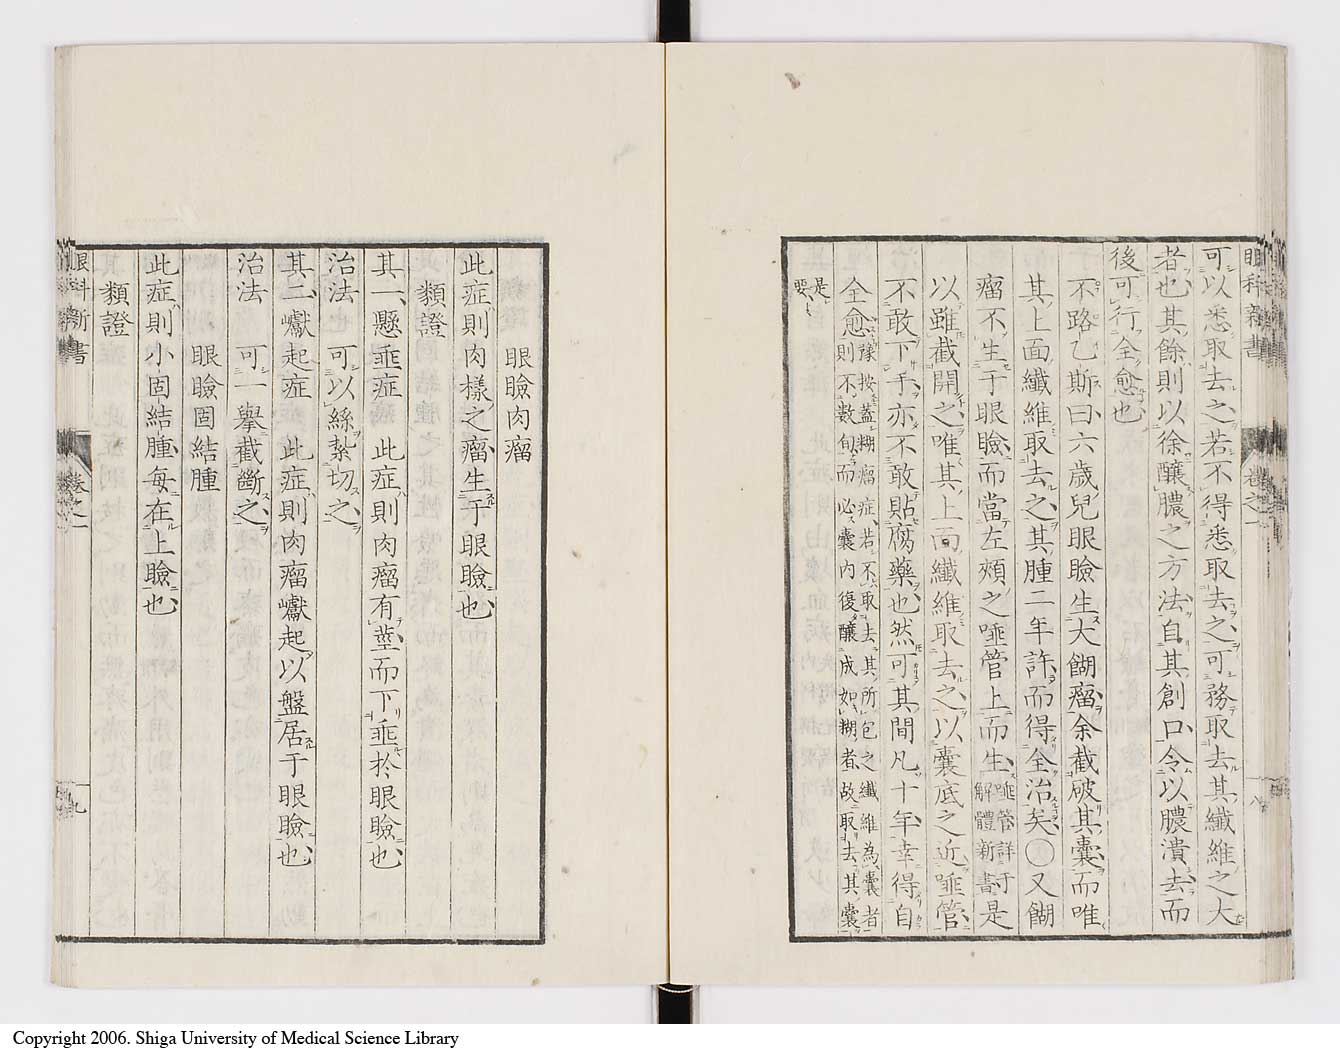 眼科新書 卷之一 八
可以悉取去之若不得悉取去之可務取去其纖維之大
者也其餘則以徐釀膿之方法自其創口令以膿潰去而
後可行全愈也
不路乙斯曰六歳兒眼瞼生大餬瘤余截破其囊而唯
其上面纖維取去之其腫二年許而得全治矣〇又餬
瘤不生于眼瞼而當左頰之唾管上而生唾管詳于解體新書是
以雖截開之唯其上面纖維取去之以囊底之近唾管
不敢下手亦不敢貼腐藥也然可其間凡十年幸得自
全愈豫按蓋糊瘤症若不取去其所包之纖維為囊者
則不數旬而必囊内復釀成如糊者故取去其囊
是
要
眼瞼肉瘤
此症則肉樣之瘤生于眼瞼也
類證
其一懸垂症 此症則肉瘤有莖而下垂於眼瞼也
治法 可以絲紮切之
其二巘起症 此症則肉瘤巘起以盤居于眼瞼也
治法 可一擧截斷之
眼瞼固結腫
此症則小固結腫每在上瞼也
類證
眼科新書 卷之一 九
Copyright 2006. Shiga University of Medical Science Library